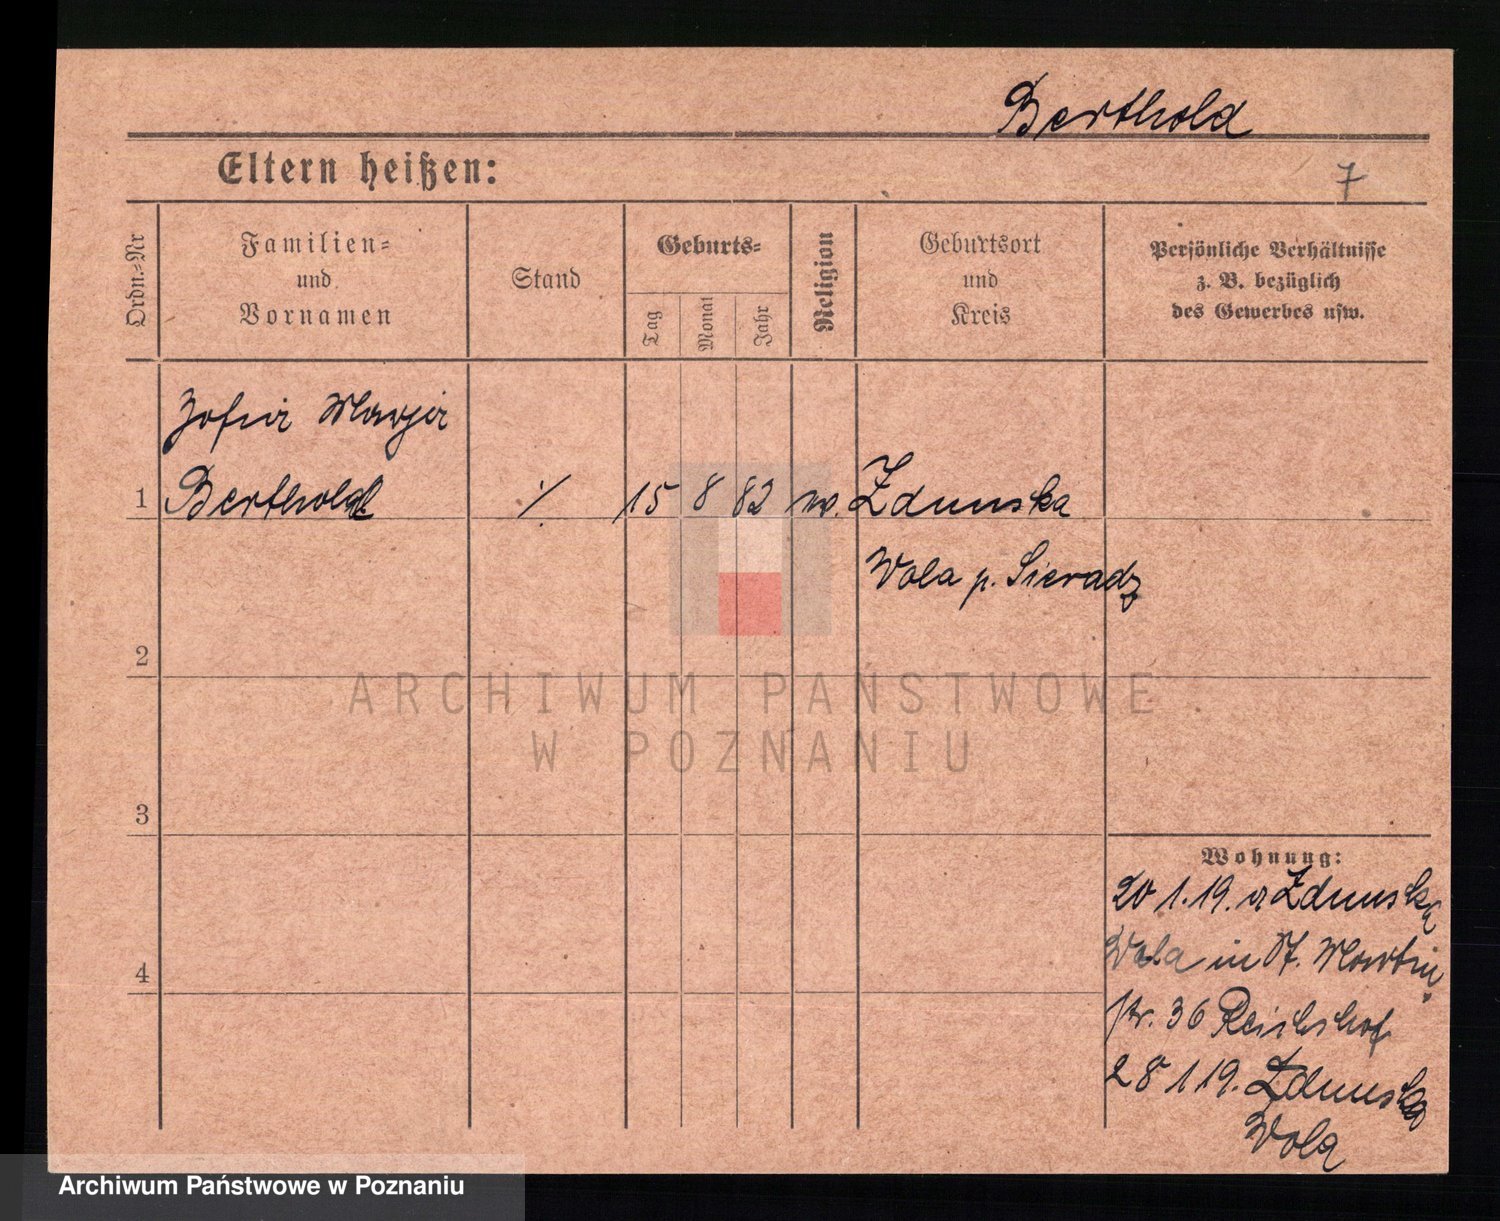 Berthold
Eltern heißen:
7
Ordn.=Nr
Familien=
und
Vornamen
Stand
Geburts=
Tag
Monat
Jahr
Religion
Geburtsort
und
Kreis
Persönliche Verhältnisse
z. B. bezüglich
des Gewerbes usw.
Zofia Marja
1 Berthold ·/· 15 8 82 Zdunska
Wola p. Sieradz
2
3
4
Wohnung:
20 1.19. a Zdunska
Wola in St. Martin
str. 36 Reichshof
28 1 19. Zdunska
Wola
ARCHIWUM PAŃSTWOWE
W POZNANIU
Archiwum Państwowe w Poznaniu